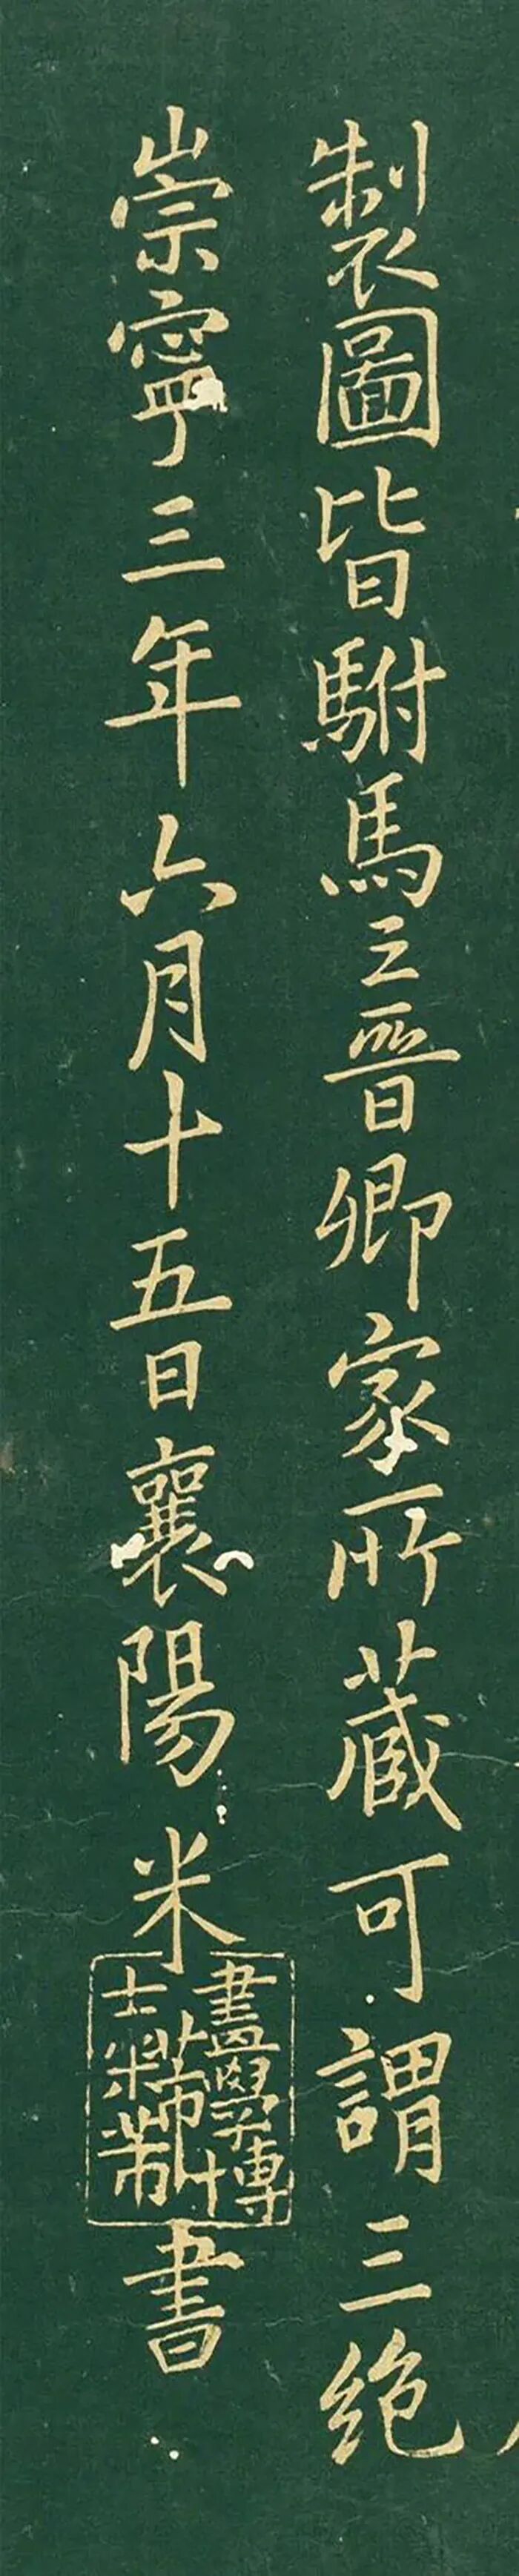 製圖皆駙馬王晉卿家所藏可謂三絶
崇寧三年六月十五日襄陽米芾書
畫學博
士米芾